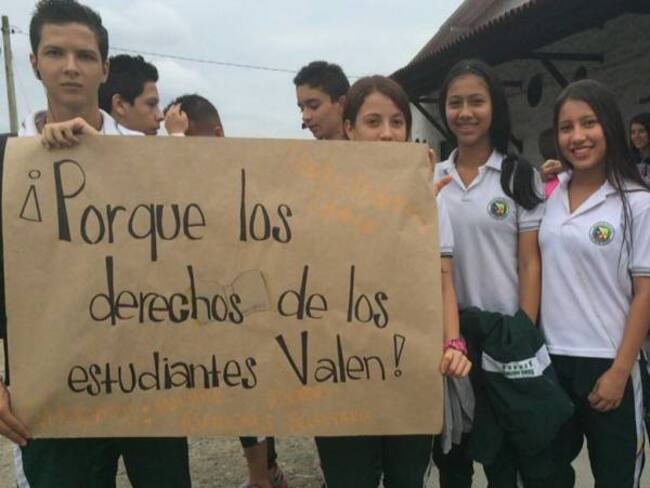 ¡Porque los
derechos de los
estudiantes Valen!